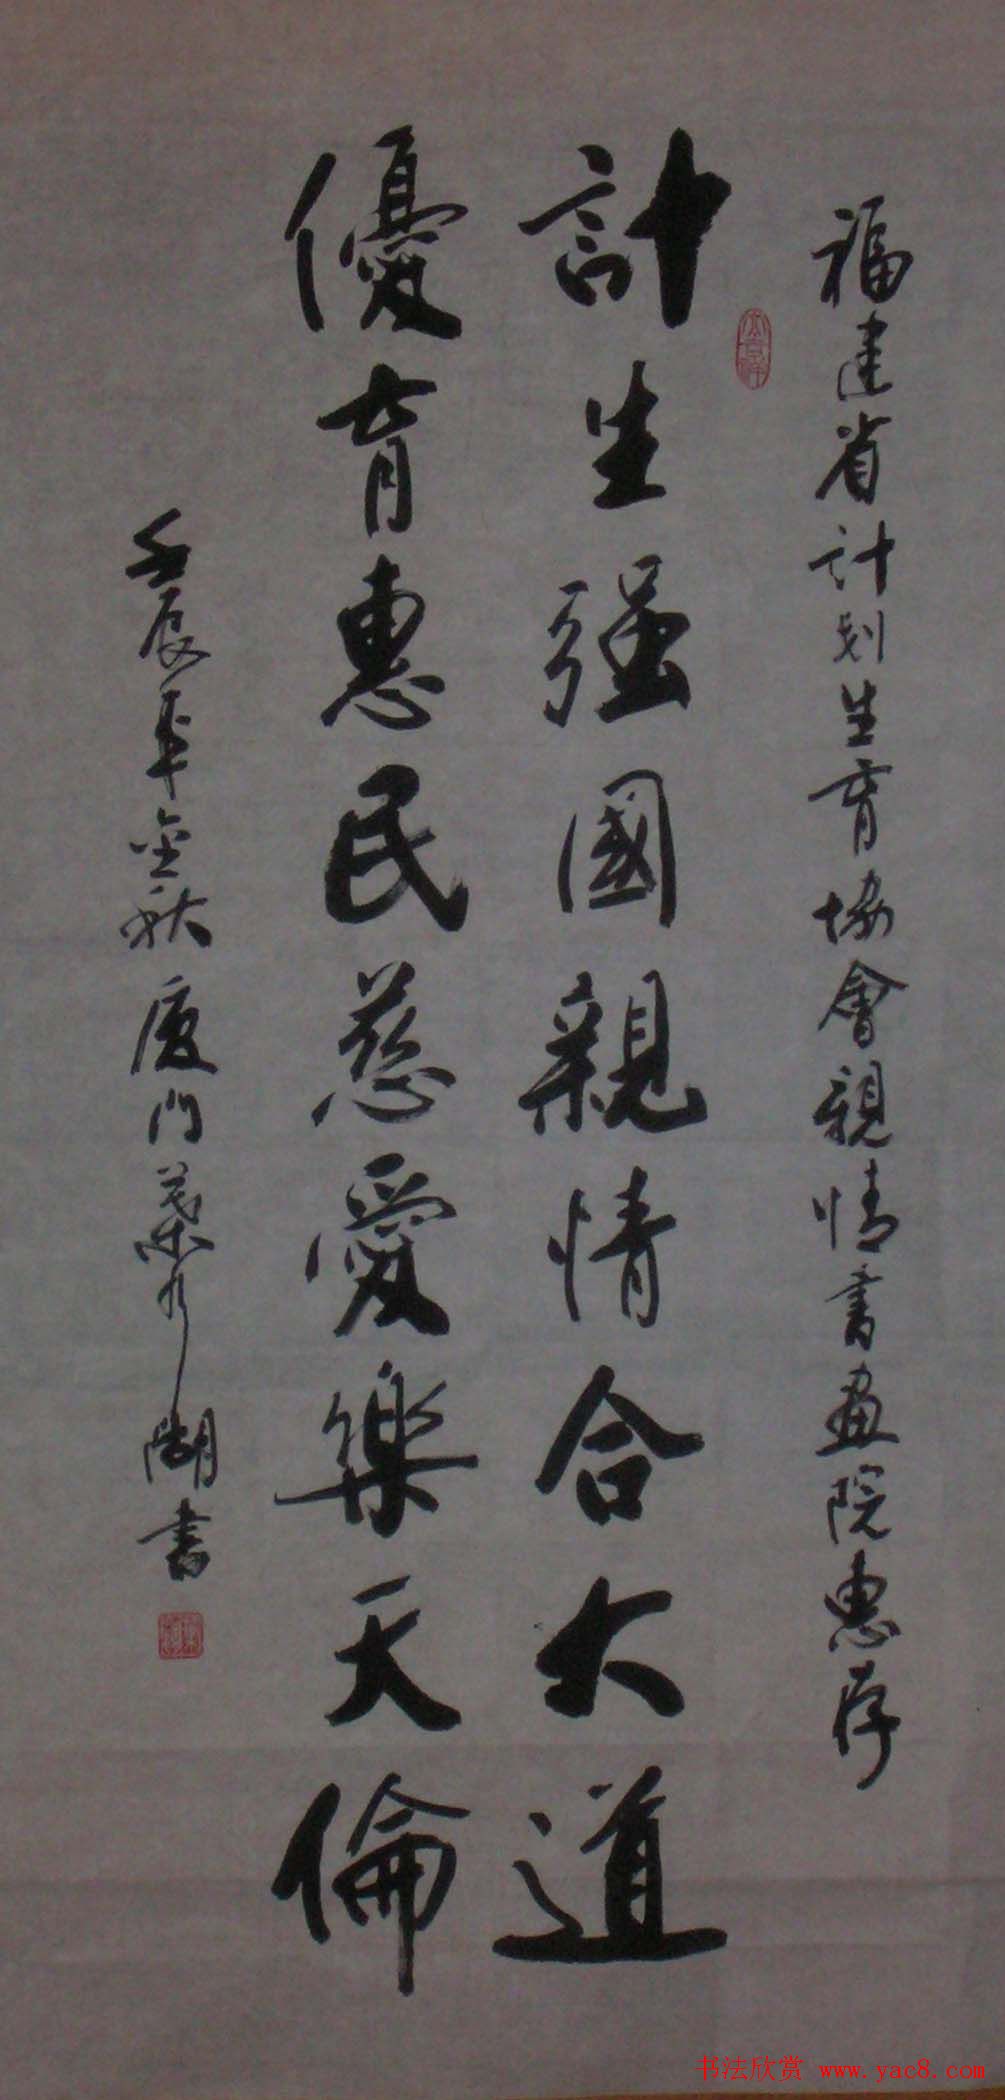 福建省计划生育協會親情書画院惠存
計生强國親情合大道
優育惠民慈愛樂天倫
壬辰年金秋厦门葉水湖書
书法欣赏 www.yac8.com